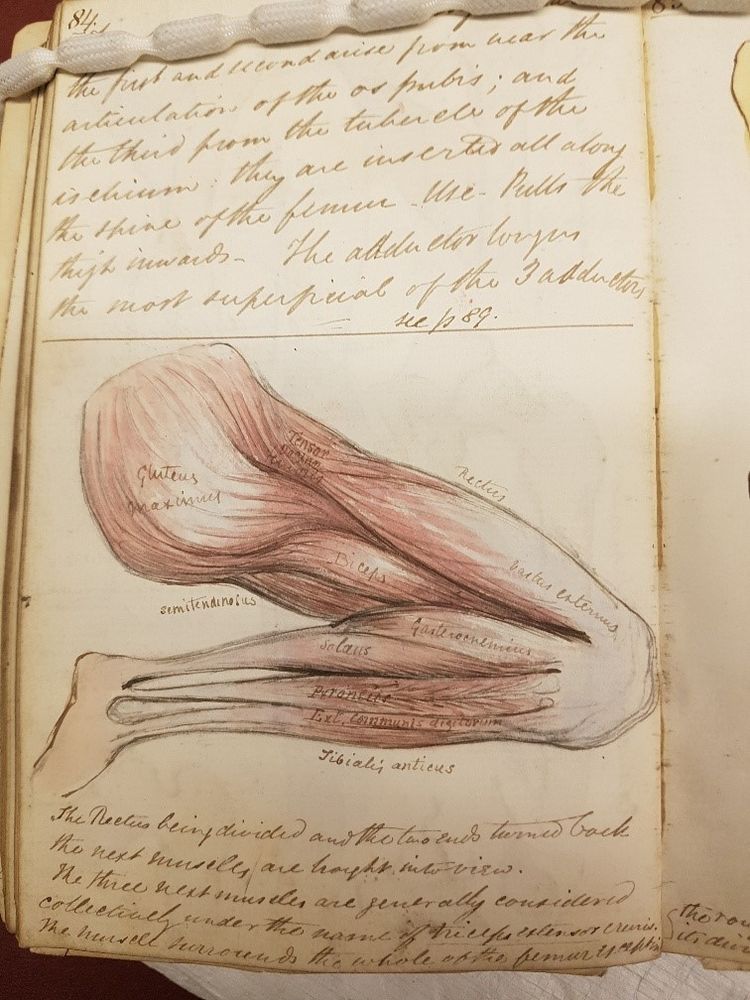 84.
the first and second arise from near the
articulation of the os pubis; and
the third from the tubercle of the
ischium: they are inserted all along
the spine of the femur - Use - Pulls the
thigh inwards - The adductor longus
the most superficial of the 3 adductors
see p 89.
Tensor
Gluteus
maximus
Rectus
Biceps
Vastus externus
semitendinosus
Gasterocnemius
Solaus
Peroneus
Ext. communis digitorum
Tibialis anticus
The Rectus being divided and the two ends turned back
the next muscles are bought into view.
The three next muscles are generally considered
collectively under the name of triceps extensor cruris.
The muscle surrounds the whole of the femur except